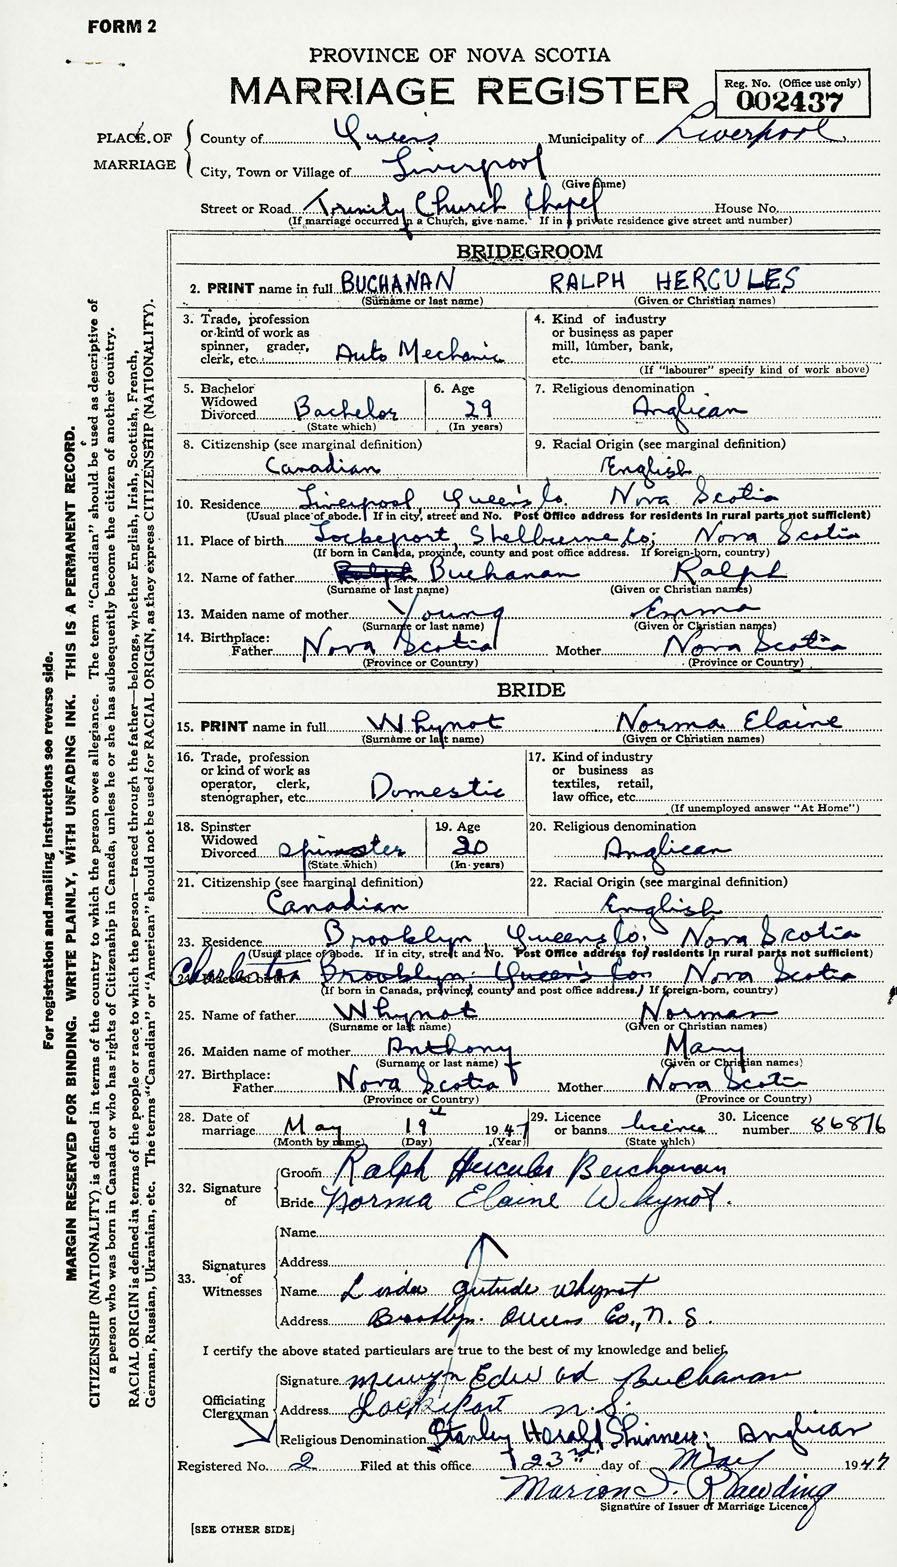 FORM 2
PROVINCE OF NOVA SCOTIA
MARRIAGE REGISTER
Reg. No. (Office use only)
002437
PLACE OF MARRIAGE
County of Queens Municipality of Liverpool
City, Town or Village of Liverpool
(Give name)
Street or Road Trinity Church Chapel House No.
(If marriage occurred in a Church, give name. If in a private residence give street and number)
BRIDEGROOM
2. PRINT name in full BUCHANAN RALPH HERCULES
(Surname or last name) (Given or Christian names)
3. Trade, profession or kind of work as spinner, grader, clerk, etc. Auto Mechanic
4. Kind of industry or business as paper mill, lumber, bank, etc.
(If "labourer" specify kind of work above)
5. Bachelor Widowed Divorced Bachelor
(State which)
6. Age 29
(In years)
7. Religious denomination Anglican
8. Citizenship (see marginal definition) Canadian
9. Racial Origin (see marginal definition) English
10. Residence Liverpool, Queen's Co. Nova Scotia
(Usual place of abode. If in city, street and No. Post Office address for residents in rural parts not sufficient)
11. Place of birth Lockeport, Shelburne Co; Nova Scotia
(If born in Canada, province, county and post office address. If foreign-born, country)
12. Name of father Ralph Buchanan Ralph
(Surname or last name) (Given or Christian names)
13. Maiden name of mother Young Emma
(Surname or last name) (Given or Christian names)
14. Birthplace: Father Nova Scotia Mother Nova Scotia
(Province or Country) (Province or Country)
BRIDE
15. PRINT name in full Whynot Norma Elaine
(Surname or last name) (Given or Christian names)
16. Trade, profession or kind of work as operator, clerk, stenographer, etc. Domestic
17. Kind of industry or business as textiles, retail, law office, etc.
(If unemployed answer "At Home")
18. Spinster Widowed Divorced Spinster
(State which)
19. Age 20
(In years)
20. Religious denomination Anglican
21. Citizenship (see marginal definition) Canadian
22. Racial Origin (see marginal definition) English
23. Residence Brooklyn, Queens Co. Nova Scotia
(Usual place of abode. If in city, street and No. Post Office address for residents in rural parts not sufficient)
24. Place of birth Charleston Brooklyn Queen's Co. Nova Scotia
(If born in Canada, province, county and post office address. If foreign-born, country)
25. Name of father Whynot Norman
(Surname or last name) (Given or Christian names)
26. Maiden name of mother Anthony Mary
(Surname or last name) (Given or Christian names)
27. Birthplace: Father Nova Scotia Mother Nova Scotia
(Province or Country) (Province or Country)
28. Date of marriage May 19th 1947
(Month by name) (Day) (Year)
29. Licence or banns licence
(State which)
30. Licence number 86876
32. Signature of
Groom Ralph Hercules Buchanan
Bride Norma Elaine Whynot.
33. Signatures of Witnesses
Name
Address
Name Linda Gertrude Whynot
Address Brooklyn Queens Co., N.S.
I certify the above stated particulars are true to the best of my knowledge and belief.
Officiating Clergyman
Signature Mervyn Edward Buchanan
Address Lockeport N.S.
Religious Denomination Stanley Harold Skinner; Anglican
Registered No. 2 Filed at this office 23rd day of May 1947
Marion I. Rawding
Signature of Issuer of Marriage Licence
[SEE OTHER SIDE]
For registration and mailing instructions see reverse side.
MARGIN RESERVED FOR BINDING. WRITE PLAINLY, WITH UNFADING INK. THIS IS A PERMANENT RECORD.
CITIZENSHIP (NATIONALITY) is defined in terms of the country to which the person owes allegiance. The term "Canadian" should be used as descriptive of
a person who was born in Canada or who has rights of Citizenship in Canada, unless he or she has subsequently become the citizen of another country.
RACIAL ORIGIN is defined in terms of the people or race to which the person—traced through the father—belongs, whether English, Irish, Scottish, French,
German, Russian, Ukrainian, etc. The terms "Canadian" or "American" should not be used for RACIAL ORIGIN, as they express CITIZENSHIP (NATIONALITY).